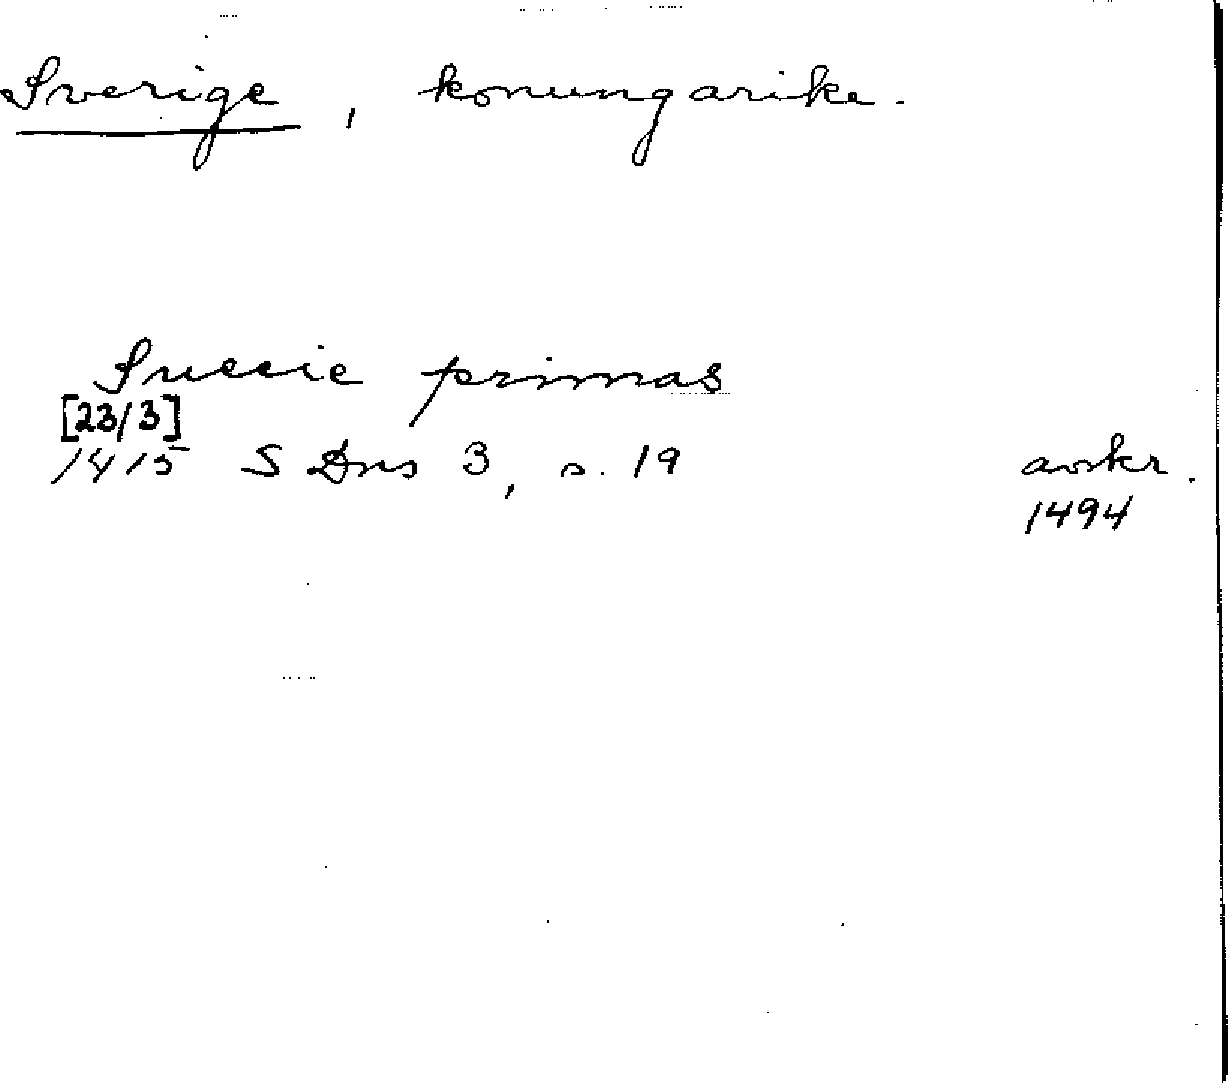 Sverige, konungarike.
Suecie primas
[23/3]
1415 S Dns 3, s. 19 avskr.
1494